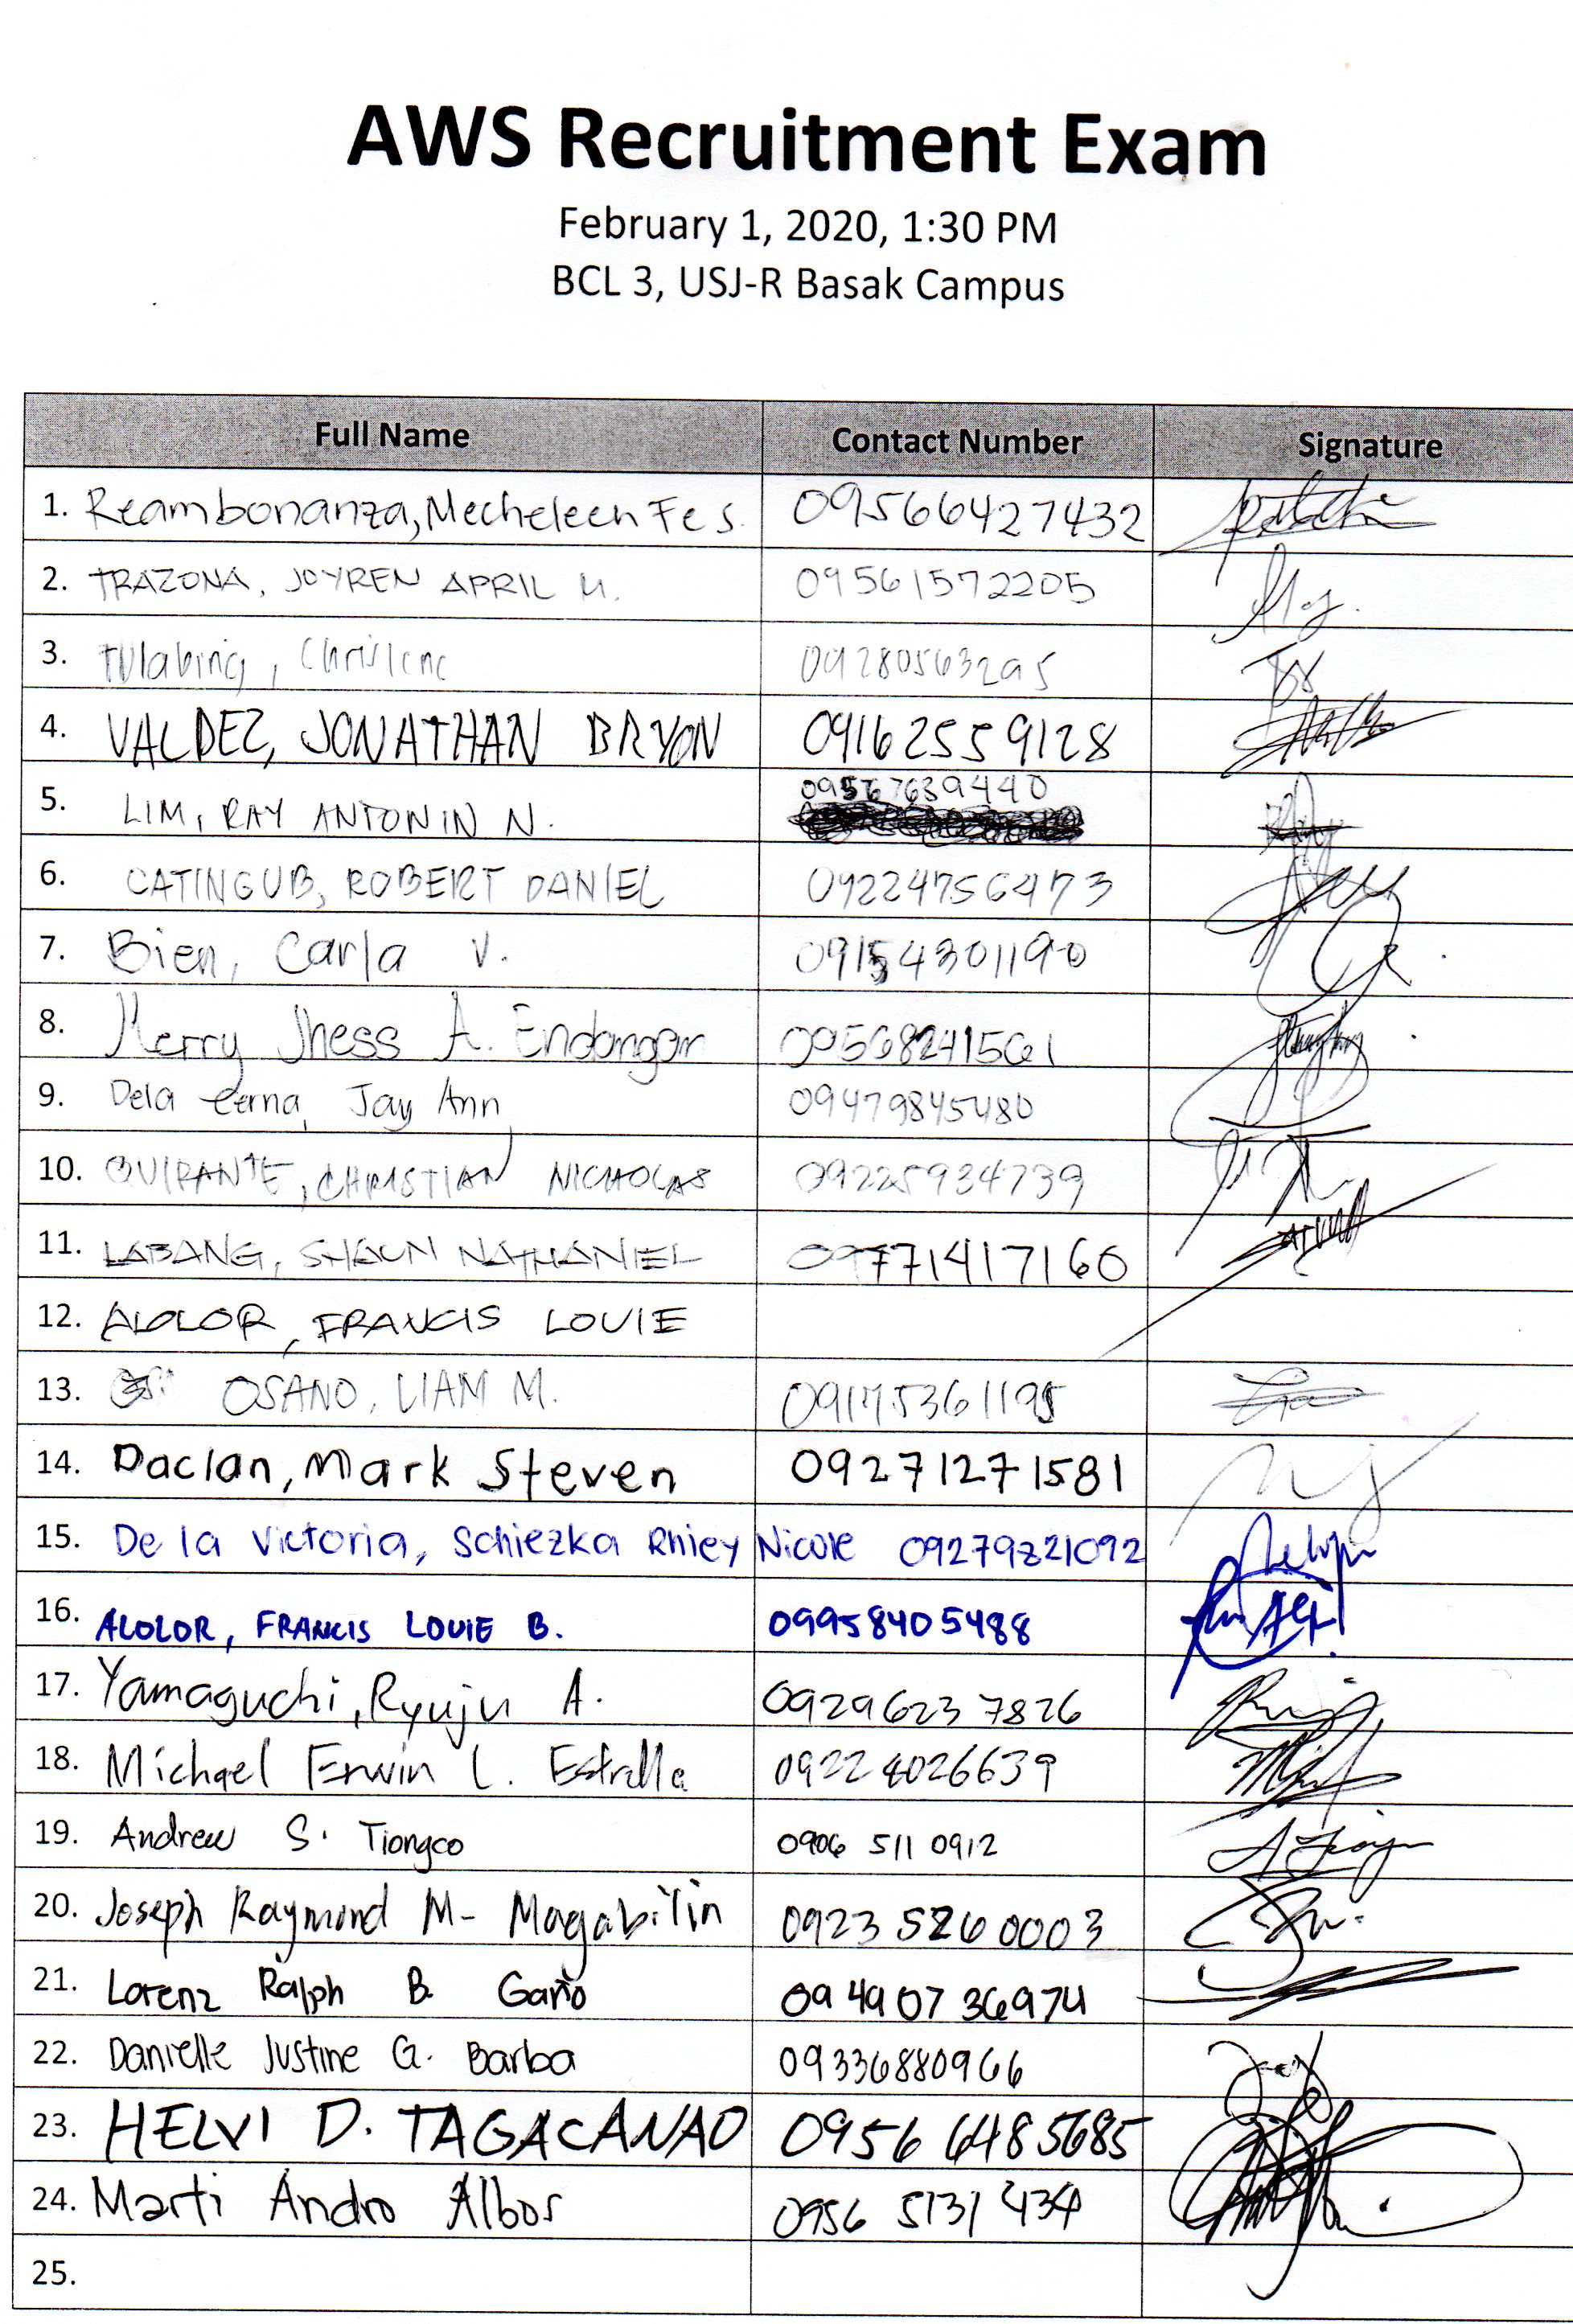 AWS Recruitment Exam
February 1, 2020, 1:30 PM
BCL 3, USJ-R Basak Campus
Full Name Contact Number Signature
1. Reambonanza, Mecheleen Fe S. 09566427432
2. TRAZONA, JOYREN APRIL M. 09561572205
3. Tulabing, Chrislene 09280563295
4. VALDEZ, JONATHAN BRYON 09162559128
5. LIM, RAY ANTONIN N. 09567639440
6. CATINGUB, ROBERT DANIEL 09224756473
7. Bien, Carla V. 09154301190
8. Merry Jhess A. Endangan 09568241561
9. Dela Cerna, Jay Ann 09479845480
10. QUIRANTE, CHRISTIAN NICHOLAS 09225934739
11. LABANG, SHAUN NATHANIEL 09771417160
12. ALOLOR, FRANCIS LOUIE
13. OSANO, LIAM M. 09175361195
14. Daclan, Mark Steven 09271271581
15. De la Victoria, Schiezka Rhiey Nicole 09279221092
16. ALOLOR, FRANCIS LOUIE B. 09958405488
17. Yamaguchi, Ryuju A. 09296237826
18. Michael Erwin L. Estrella 09224026639
19. Andrew S. Tiongco 0906 511 0912
20. Joseph Raymond M. Magabilin 0923 526 0003
21. Lorenz Ralph B. Gaño 09490736974
22. Danielle Justine G. Barba 09336880966
23. HELVI D. TAGACANAO 0956 6485685
24. Marti Andro Albos 0956 5131 434
25.